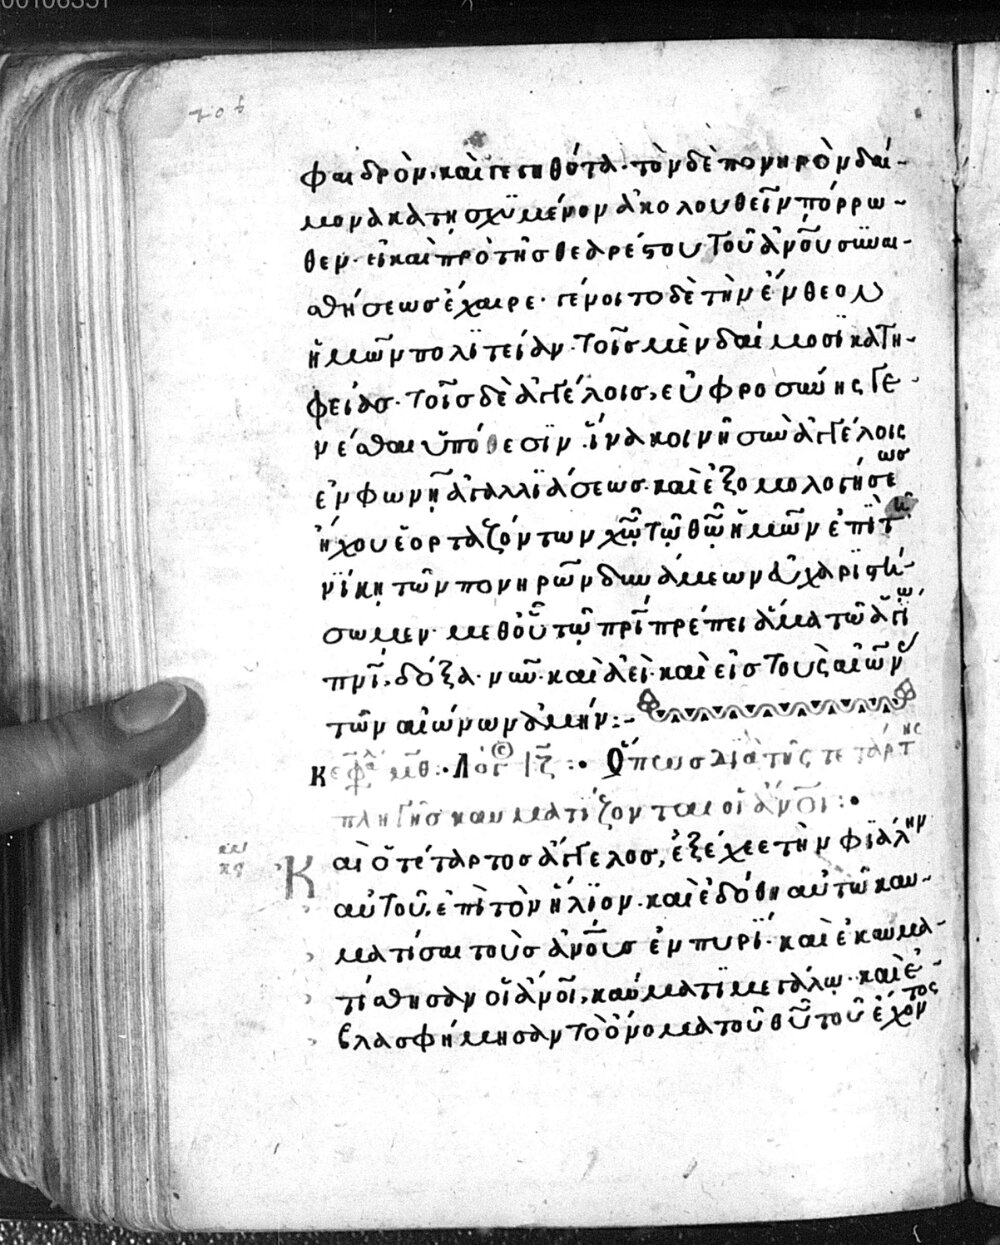 00106351
φαιδρὸν· καὶ γεγηθότα· τὸν δὲ πονηρὸν δαί-
μονα κατησχϋμένον ἀκολουθεῖν πόρρω-
θεν· εἰ καὶ πρὸ τῆσ θεαρέστου τοῦ ἀνου συναι-
σθήσεωσ ἔχαιρε· γένοιτο δὲ τὴν ἔνθεον
ἡμῶν πολϊτείαν· τοῖσ μὲν δαίμοσϊ κατη-
φείασ· τοῖσ δὲ ἀγγέλοισ, εὐφροσύνης γε-
νέσθαι ὑπόθεσϊν· ἵνα κοινῆ σὺν ἀγγέλοις
ἐν φωνῆ ἀγαλλϊάσεωσ· καὶ ἐξομολογήσεωσ
ἤχου ἑορταζόντων χῶ τῶ θῶ ἡμῶν ἐπὶ τῆ
νίκη τῶν πονηρῶν δυνάμεων εὐχαρϊστή-
σωμεν· μεθοῦ τῶ πρὶ πρέπει ἅμα τῶ ἁγίω
πνι, δόξα· νῦν· καὶ ἀεὶ· καὶ εἰσ τοὺς αἰῶνας
τῶν αἰώνων ἀμήν:-
κεφαλ μθ:· λόγ ιζ:· Ὅπωσ διὰ τῆς τετάρτης
πληγῆσ καυματίζονται οἱ ἄνοι:·
Καὶ ὁ τέταρτοσ ἄγγελοσ, ἐξέχεε τὴν φϊάλην
αὐτοῦ, ἐπὶ τὸν ἥλϊον· καὶ ἐδόθη αὐτῶ καυ-
ματίσαι τοὺσ ἀνουσ ἐν πυρϊ· καὶ ἐκαυμα-
τίσθησαν οἱ ἄνοι, καῦμα τϊ μεγάλω· καὶ ἐ-
βλασφήμησαν τὸ ὄνομα τοῦ θῦ τοῦ ἔχοντος